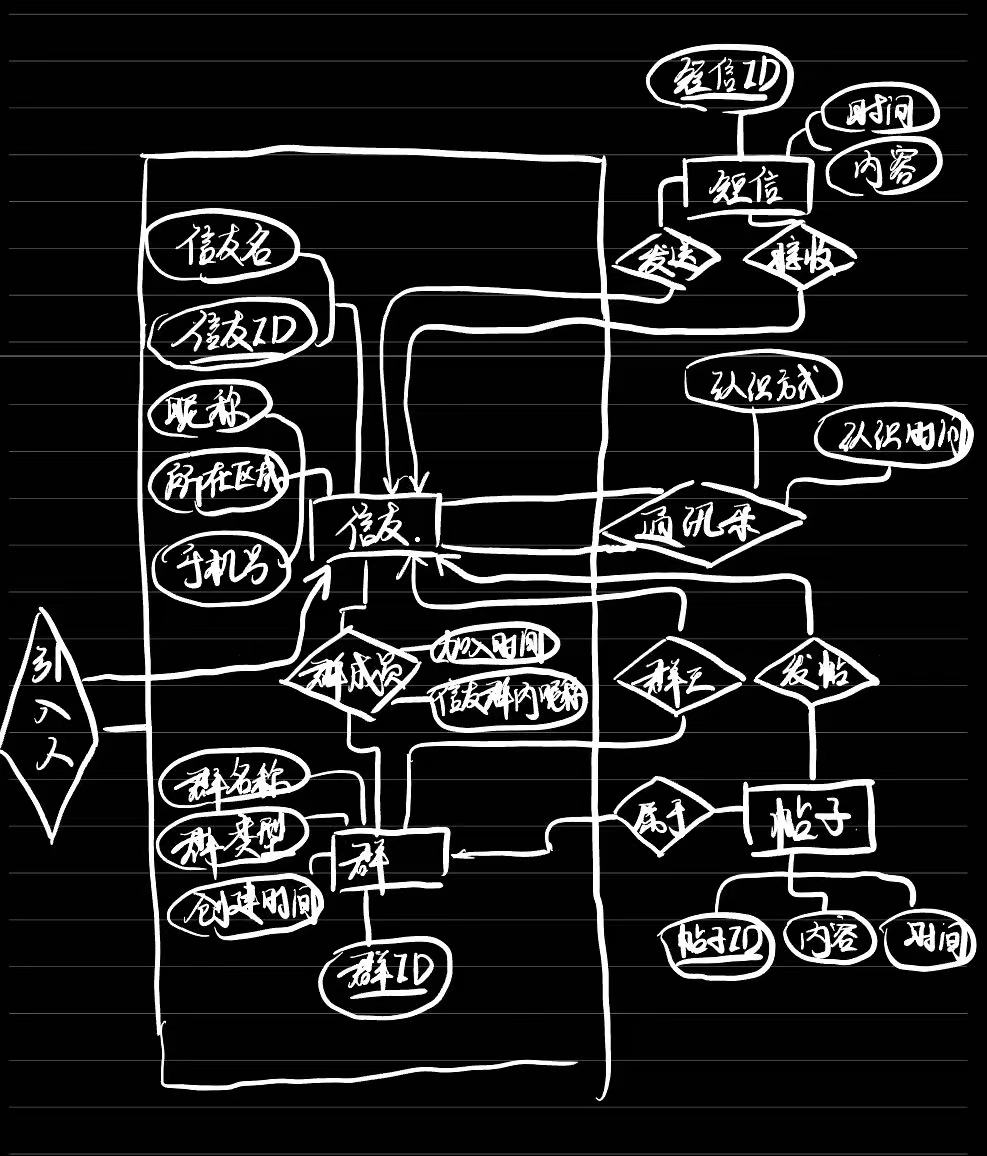 短信ID
时间
内容
短信
发送
接收
信友名
信友ID
昵称
所在区域
手机号
信友
认识方式
认识时间
通讯录
引入人
群成员
加入时间
信友群内昵称
群主
发帖
群名称
群类型
创建时间
群
群ID
属于
帖子
帖子ID
内容
时间